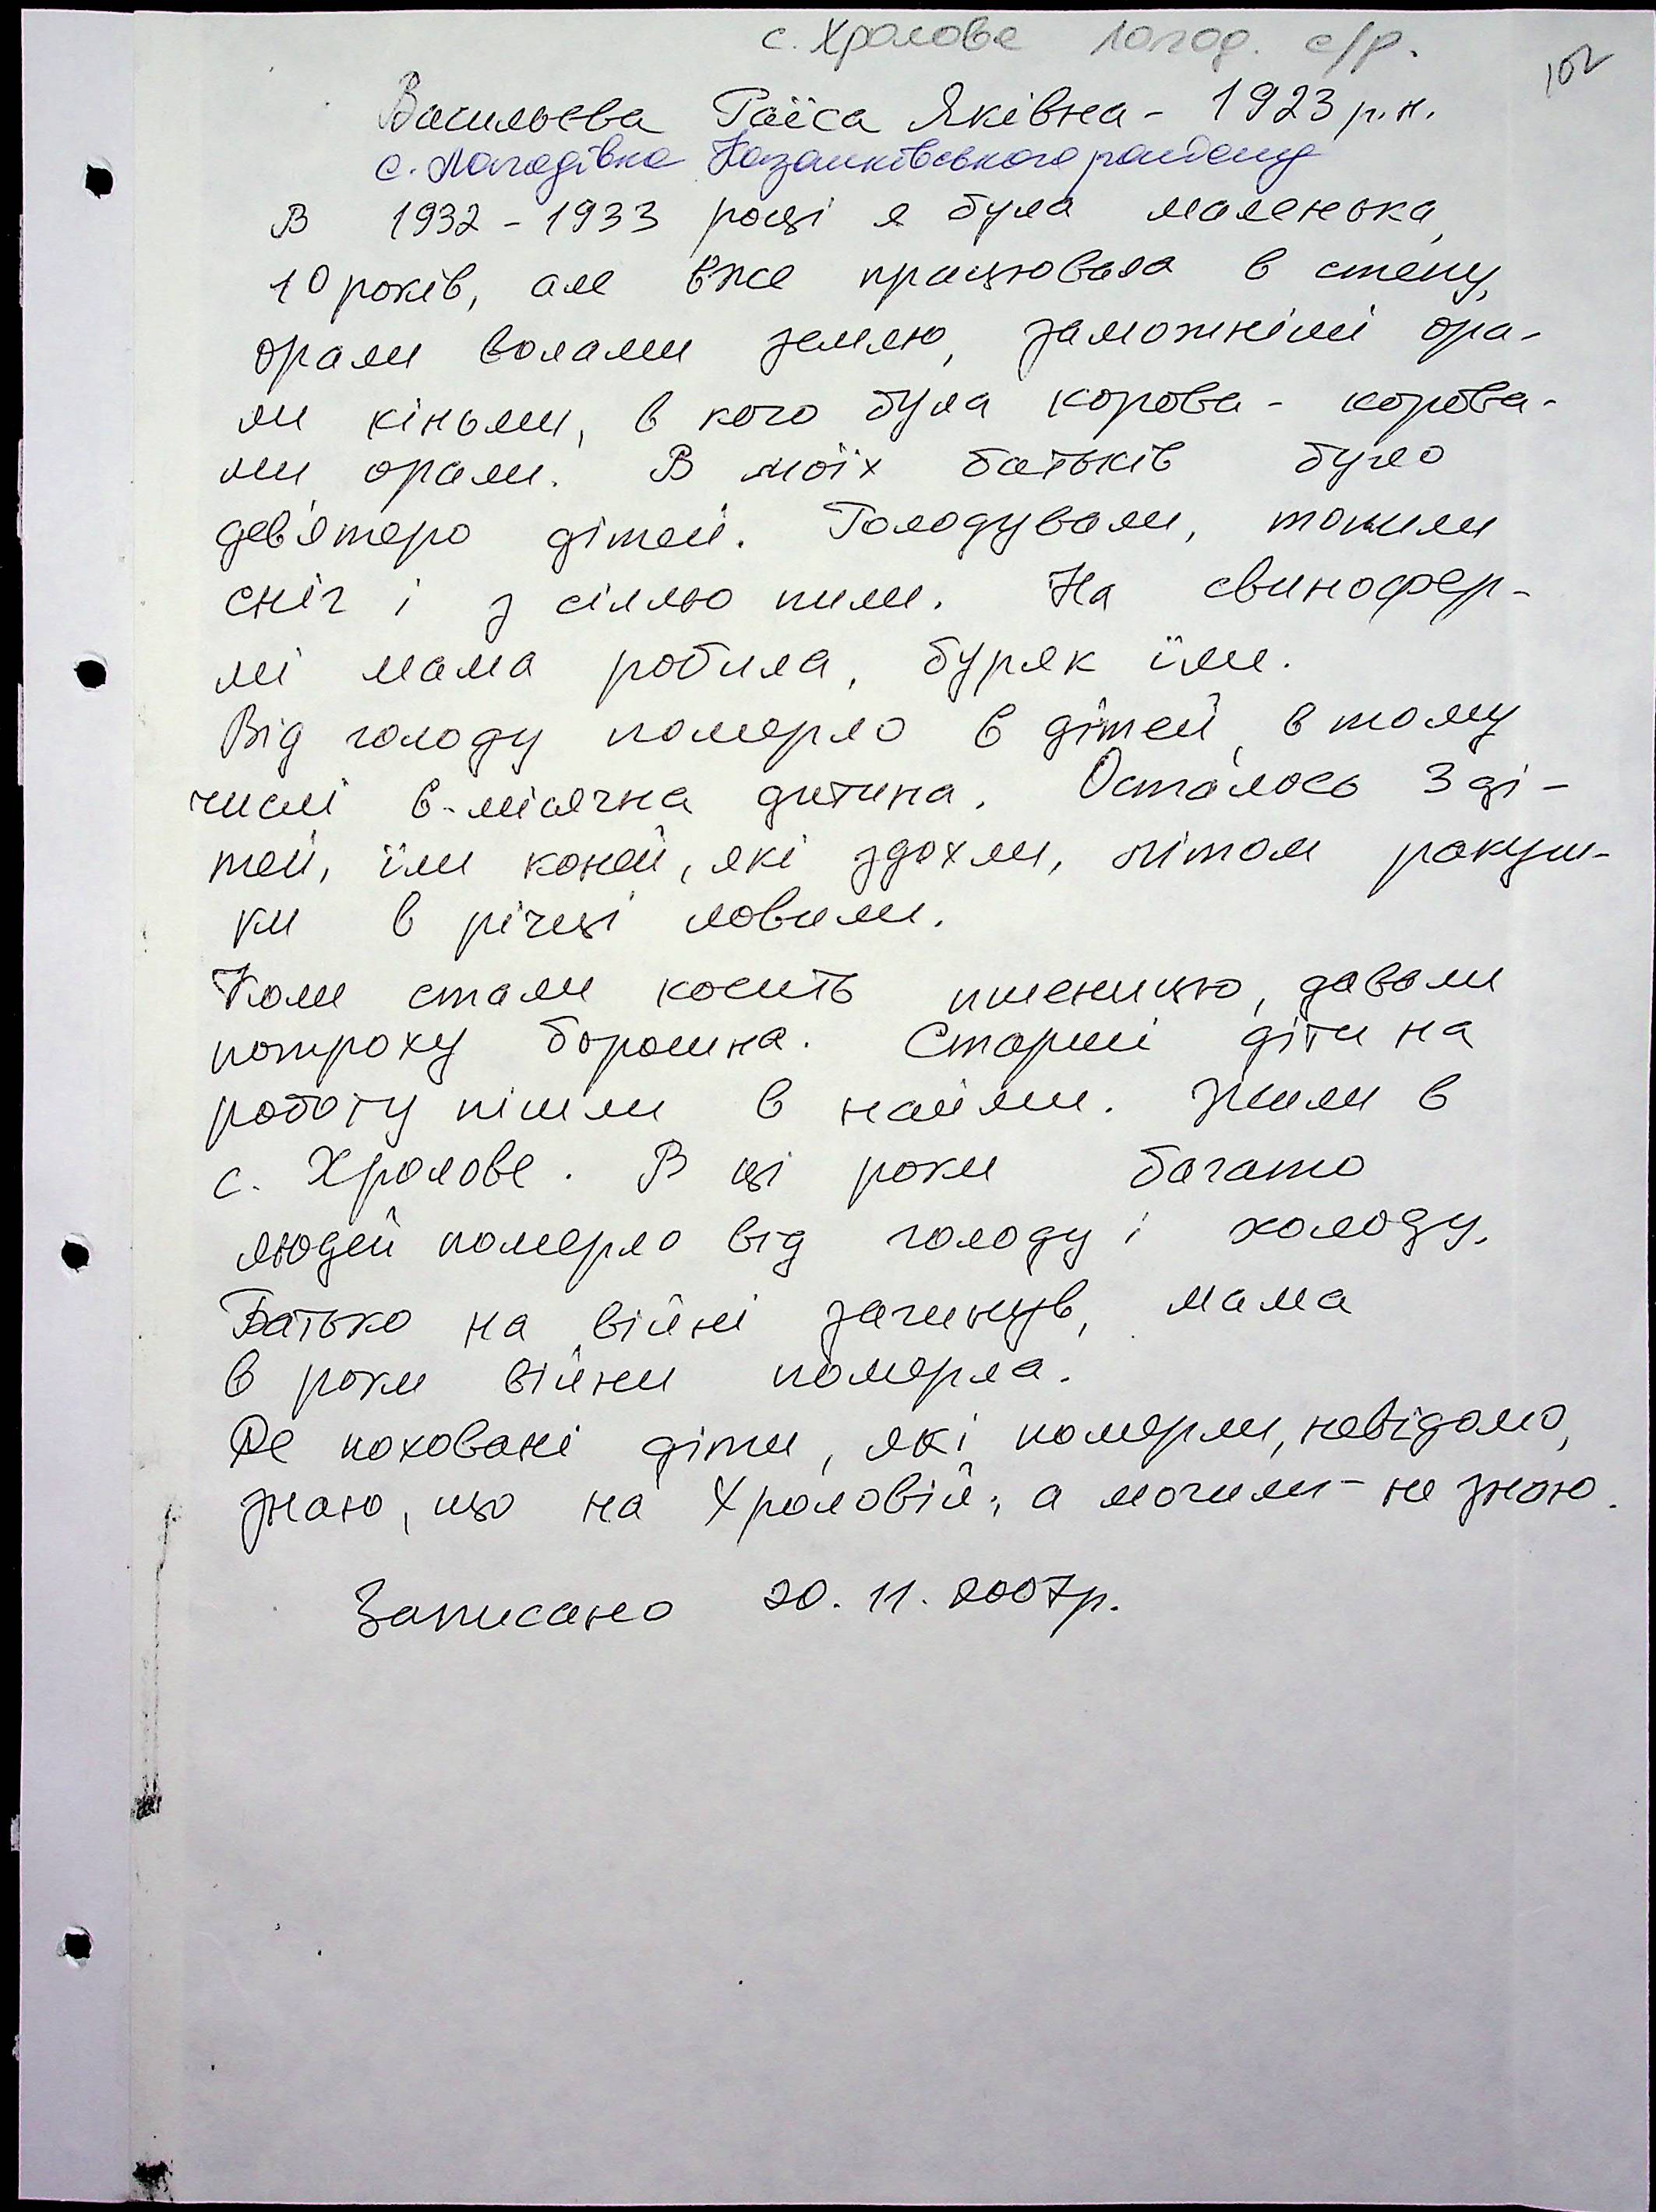 с. Хролове Лагод. с/р.
102
Васильєва Раїса Яківна - 1923 р.н.
с. Лагодівка Казанківського району
В 1932 - 1933 році я була маленька,
10 років, але вже працювала в степу,
орали волами землю, заможніші ора-
ли кіньми, в кого була корова - корова-
ми орали. В моїх батьків було
дев'ятеро дітей. Голодували, топили
сніг і з сіллю пили. На свинофер-
мі мама робила, буряк їли.
Від голоду померло 6 дітей, в тому
числі 6-місячна дитина. Осталось 3 ді-
тей, їли коней, які здохли, літом ракуш-
ки в річці ловили.
Коли стали косить пшеницю, давали
потроху борошна. Старші діти на
роботу пішли в найми. Жили в
с. Хролове. В ці роки багато
людей померло від голоду і холоду.
Батько на війні загинув, мама
в роки війни померла.
Де поховані діти, які померли, невідомо,
знаю, що на Хроловій, а могили - не знаю.
Записано 20. 11. 2007р.